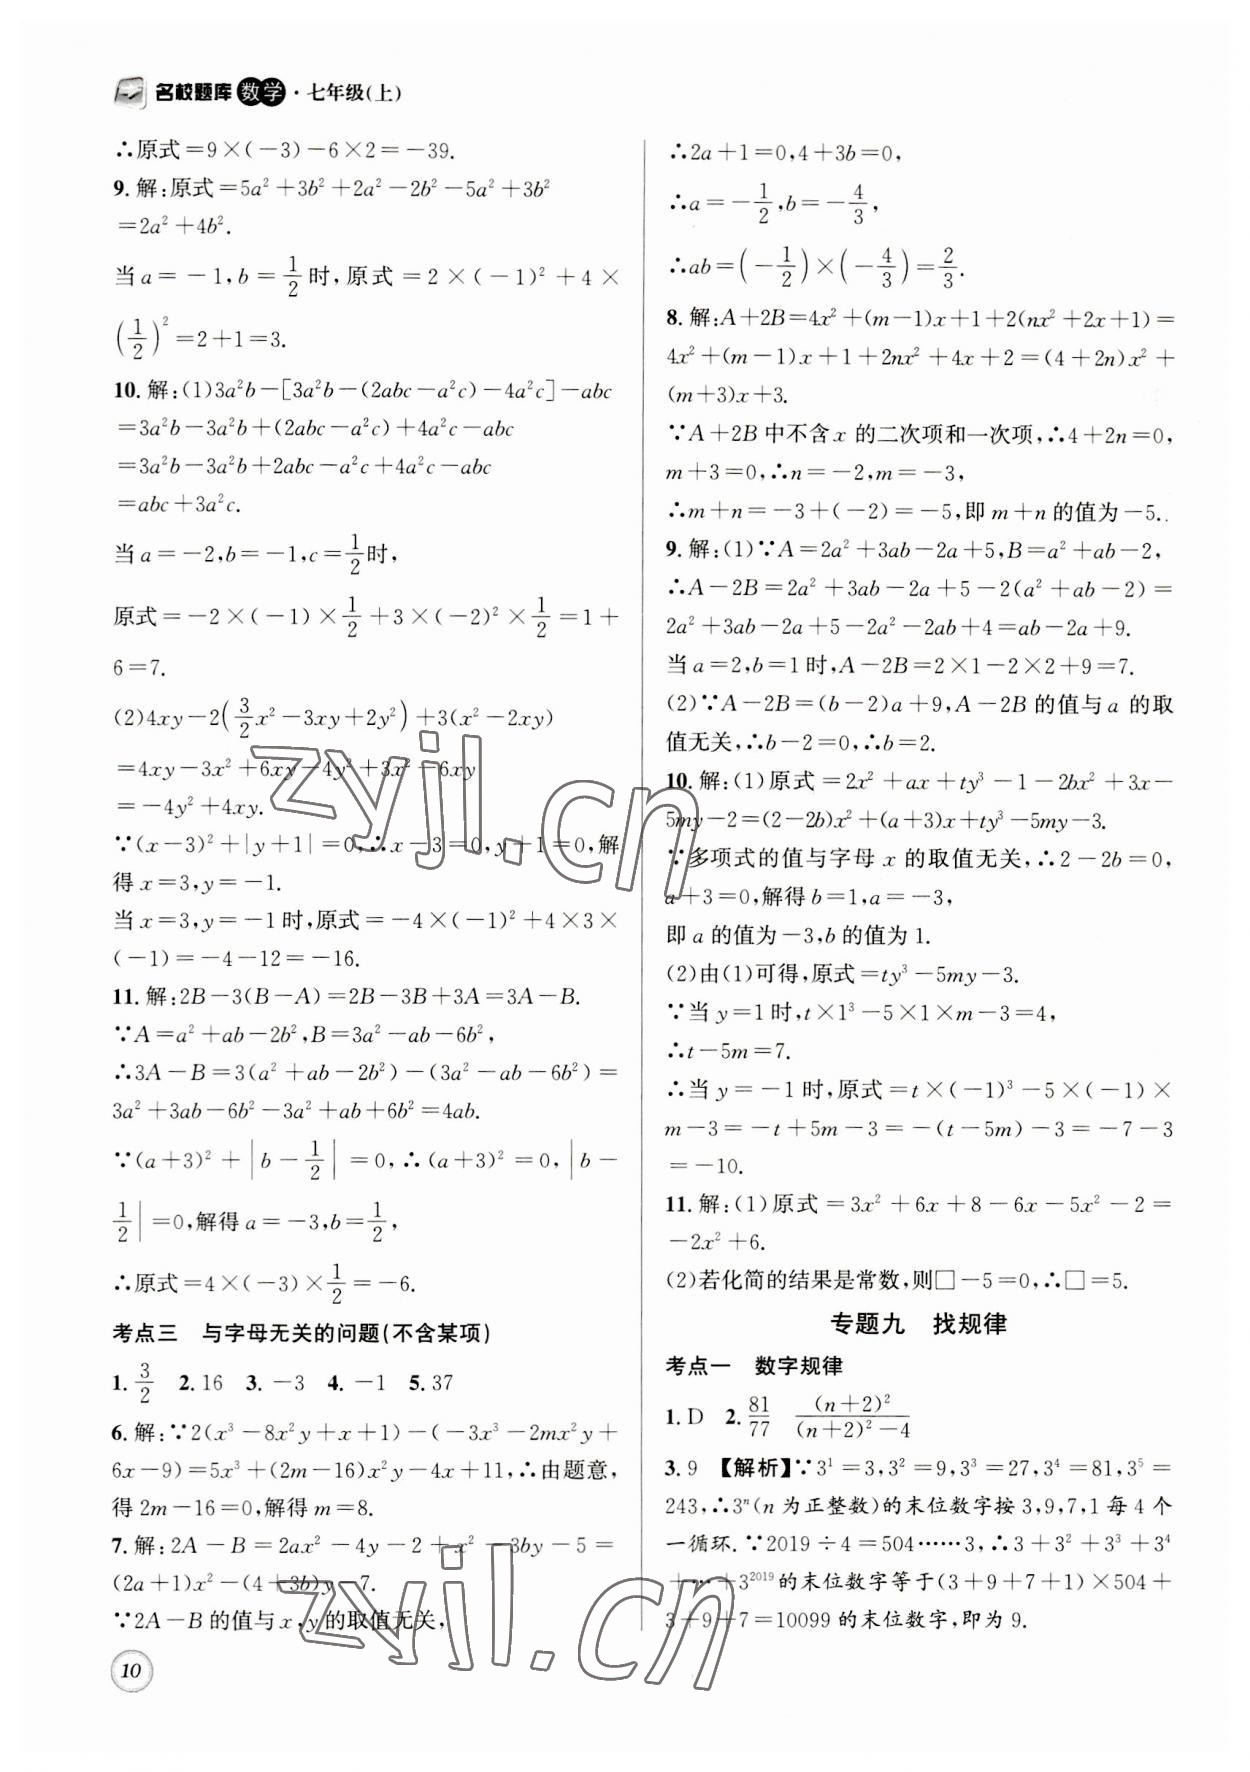 名校题库 数学·七年级(上)
∴原式=9×(-3)-6×2=-39.
9. 解:原式=5a²+3b²+2a²-2b²-5a²+3b²
=2a²+4b².
当 a=-1,b=1/2时,原式=2×(-1)²+4×
(1/2)²=2+1=3.
10. 解:(1)3a²b-[3a²b-(2abc-a²c)-4a²c]-abc
=3a²b-3a²b+(2abc-a²c)+4a²c-abc
=3a²b-3a²b+2abc-a²c+4a²c-abc
=abc+3a²c.
当 a=-2,b=-1,c=1/2时,
原式=-2×(-1)×1/2+3×(-2)²×1/2=1+
6=7.
(2)4xy-2(3/2x²-3xy+2y²)+3(x²-2xy)
=4xy-3x²+6xy-4y²+3x²-6xy
=-4y²+4xy.
∵(x-3)²+|y+1|=0,∴x-3=0,y+1=0,解
得 x=3,y=-1.
当 x=3,y=-1时,原式=-4×(-1)²+4×3×
(-1)=-4-12=-16.
11. 解:2B-3(B-A)=2B-3B+3A=3A-B.
∵A=a²+ab-2b²,B=3a²-ab-6b²,
∴3A-B=3(a²+ab-2b²)-(3a²-ab-6b²)=
3a²+3ab-6b²-3a²+ab+6b²=4ab.
∵(a+3)²+|b-1/2|=0,∴(a+3)²=0,|b-
1/2|=0,解得 a=-3,b=1/2,
∴原式=4×(-3)×1/2=-6.
考点三 与字母无关的问题(不含某项)
1. 3/2 2. 16 3. -3 4. -1 5. 37
6. 解:∵2(x³-8x²y+x+1)-(-3x³-2mx²y+
6x-9)=5x³+(2m-16)x²y-4x+11,∴由题意,
得 2m-16=0,解得 m=8.
7. 解:2A-B=2ax²-4y-2+x²-3by-5=
(2a+1)x²-(4+3b)y-7.
∵2A-B 的值与 x,y 的取值无关,
10
∴2a+1=0,4+3b=0,
∴a=-1/2,b=-4/3,
∴ab=(-1/2)×(-4/3)=2/3.
8. 解:A+2B=4x²+(m-1)x+1+2(nx²+2x+1)=
4x²+(m-1)x+1+2nx²+4x+2=(4+2n)x²+
(m+3)x+3.
∵A+2B 中不含 x 的二次项和一次项,∴4+2n=0,
m+3=0,∴n=-2,m=-3,
∴m+n=-3+(-2)=-5,即 m+n 的值为-5.
9. 解:(1)∵A=2a²+3ab-2a+5,B=a²+ab-2,
∴A-2B=2a²+3ab-2a+5-2(a²+ab-2)=
2a²+3ab-2a+5-2a²-2ab+4=ab-2a+9.
当 a=2,b=1时,A-2B=2×1-2×2+9=7.
(2)∵A-2B=(b-2)a+9,A-2B 的值与 a 的取
值无关,∴b-2=0,∴b=2.
10. 解:(1)原式=2x²+ax+ty³-1-2bx²+3x-
5my-2=(2-2b)x²+(a+3)x+ty³-5my-3.
∵多项式的值与字母 x 的取值无关,∴2-2b=0,
a+3=0,解得 b=1,a=-3,
即 a 的值为-3,b 的值为 1.
(2)由(1)可得,原式=ty³-5my-3.
∵当 y=1时,t×1³-5×1×m-3=4,
∴t-5m=7.
∴当 y=-1时,原式=t×(-1)³-5×(-1)×
m-3=-t+5m-3=-(t-5m)-3=-7-3
=-10.
11. 解:(1)原式=3x²+6x+8-6x-5x²-2=
-2x²+6.
(2)若化简的结果是常数,则□-5=0,∴□=5.
专题九 找规律
考点一 数字规律
1. D 2. 81/77 (n+2)²/((n+2)²-4)
3. 9 【解析】∵3¹=3,3²=9,3³=27,3⁴=81,3⁵=
243,∴3ⁿ(n 为正整数)的末位数字按 3,9,7,1 每 4 个
一循环.∵2019÷4=504……3,∴3+3²+3³+3⁴
+…+3²⁰¹⁹的末位数字等于(3+9+7+1)×504+
3+9+7=10099 的末位数字,即为 9.
zyjl.cn
zyjl.cn